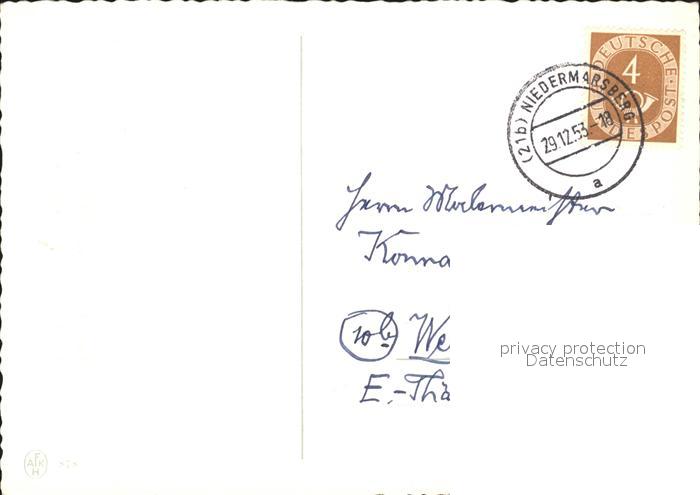 DEUTSCHE BUNDESPOST
4
(21b) NIEDERMARSBERG
29.12.53.-18
a
Herrn Malermeister
Konra
10b We
E.-Thä
privacy protection
Datenschutz
AFKH